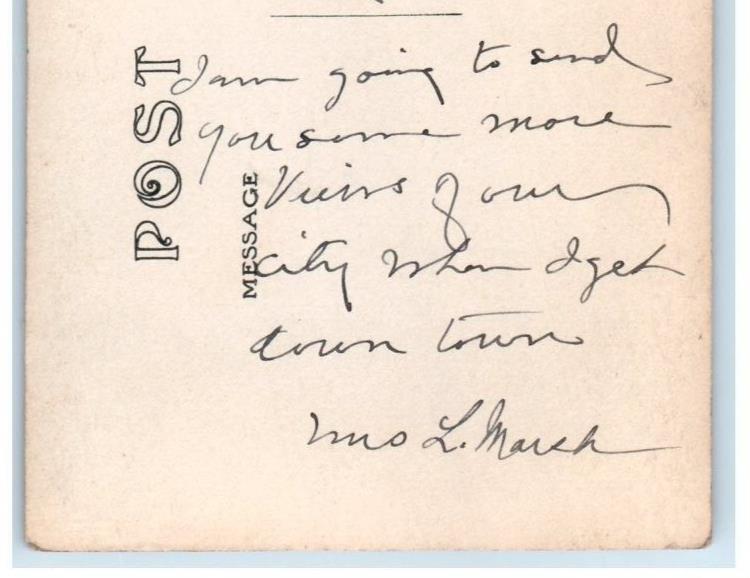 POST
MESSAGE
I am going to send
you some more
Views of our
city when I get
down town
Mrs L. Marsh